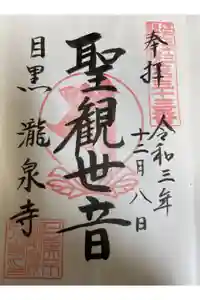 奉拝
令和三年
十二月八日
聖観世音
目黒
瀧泉寺